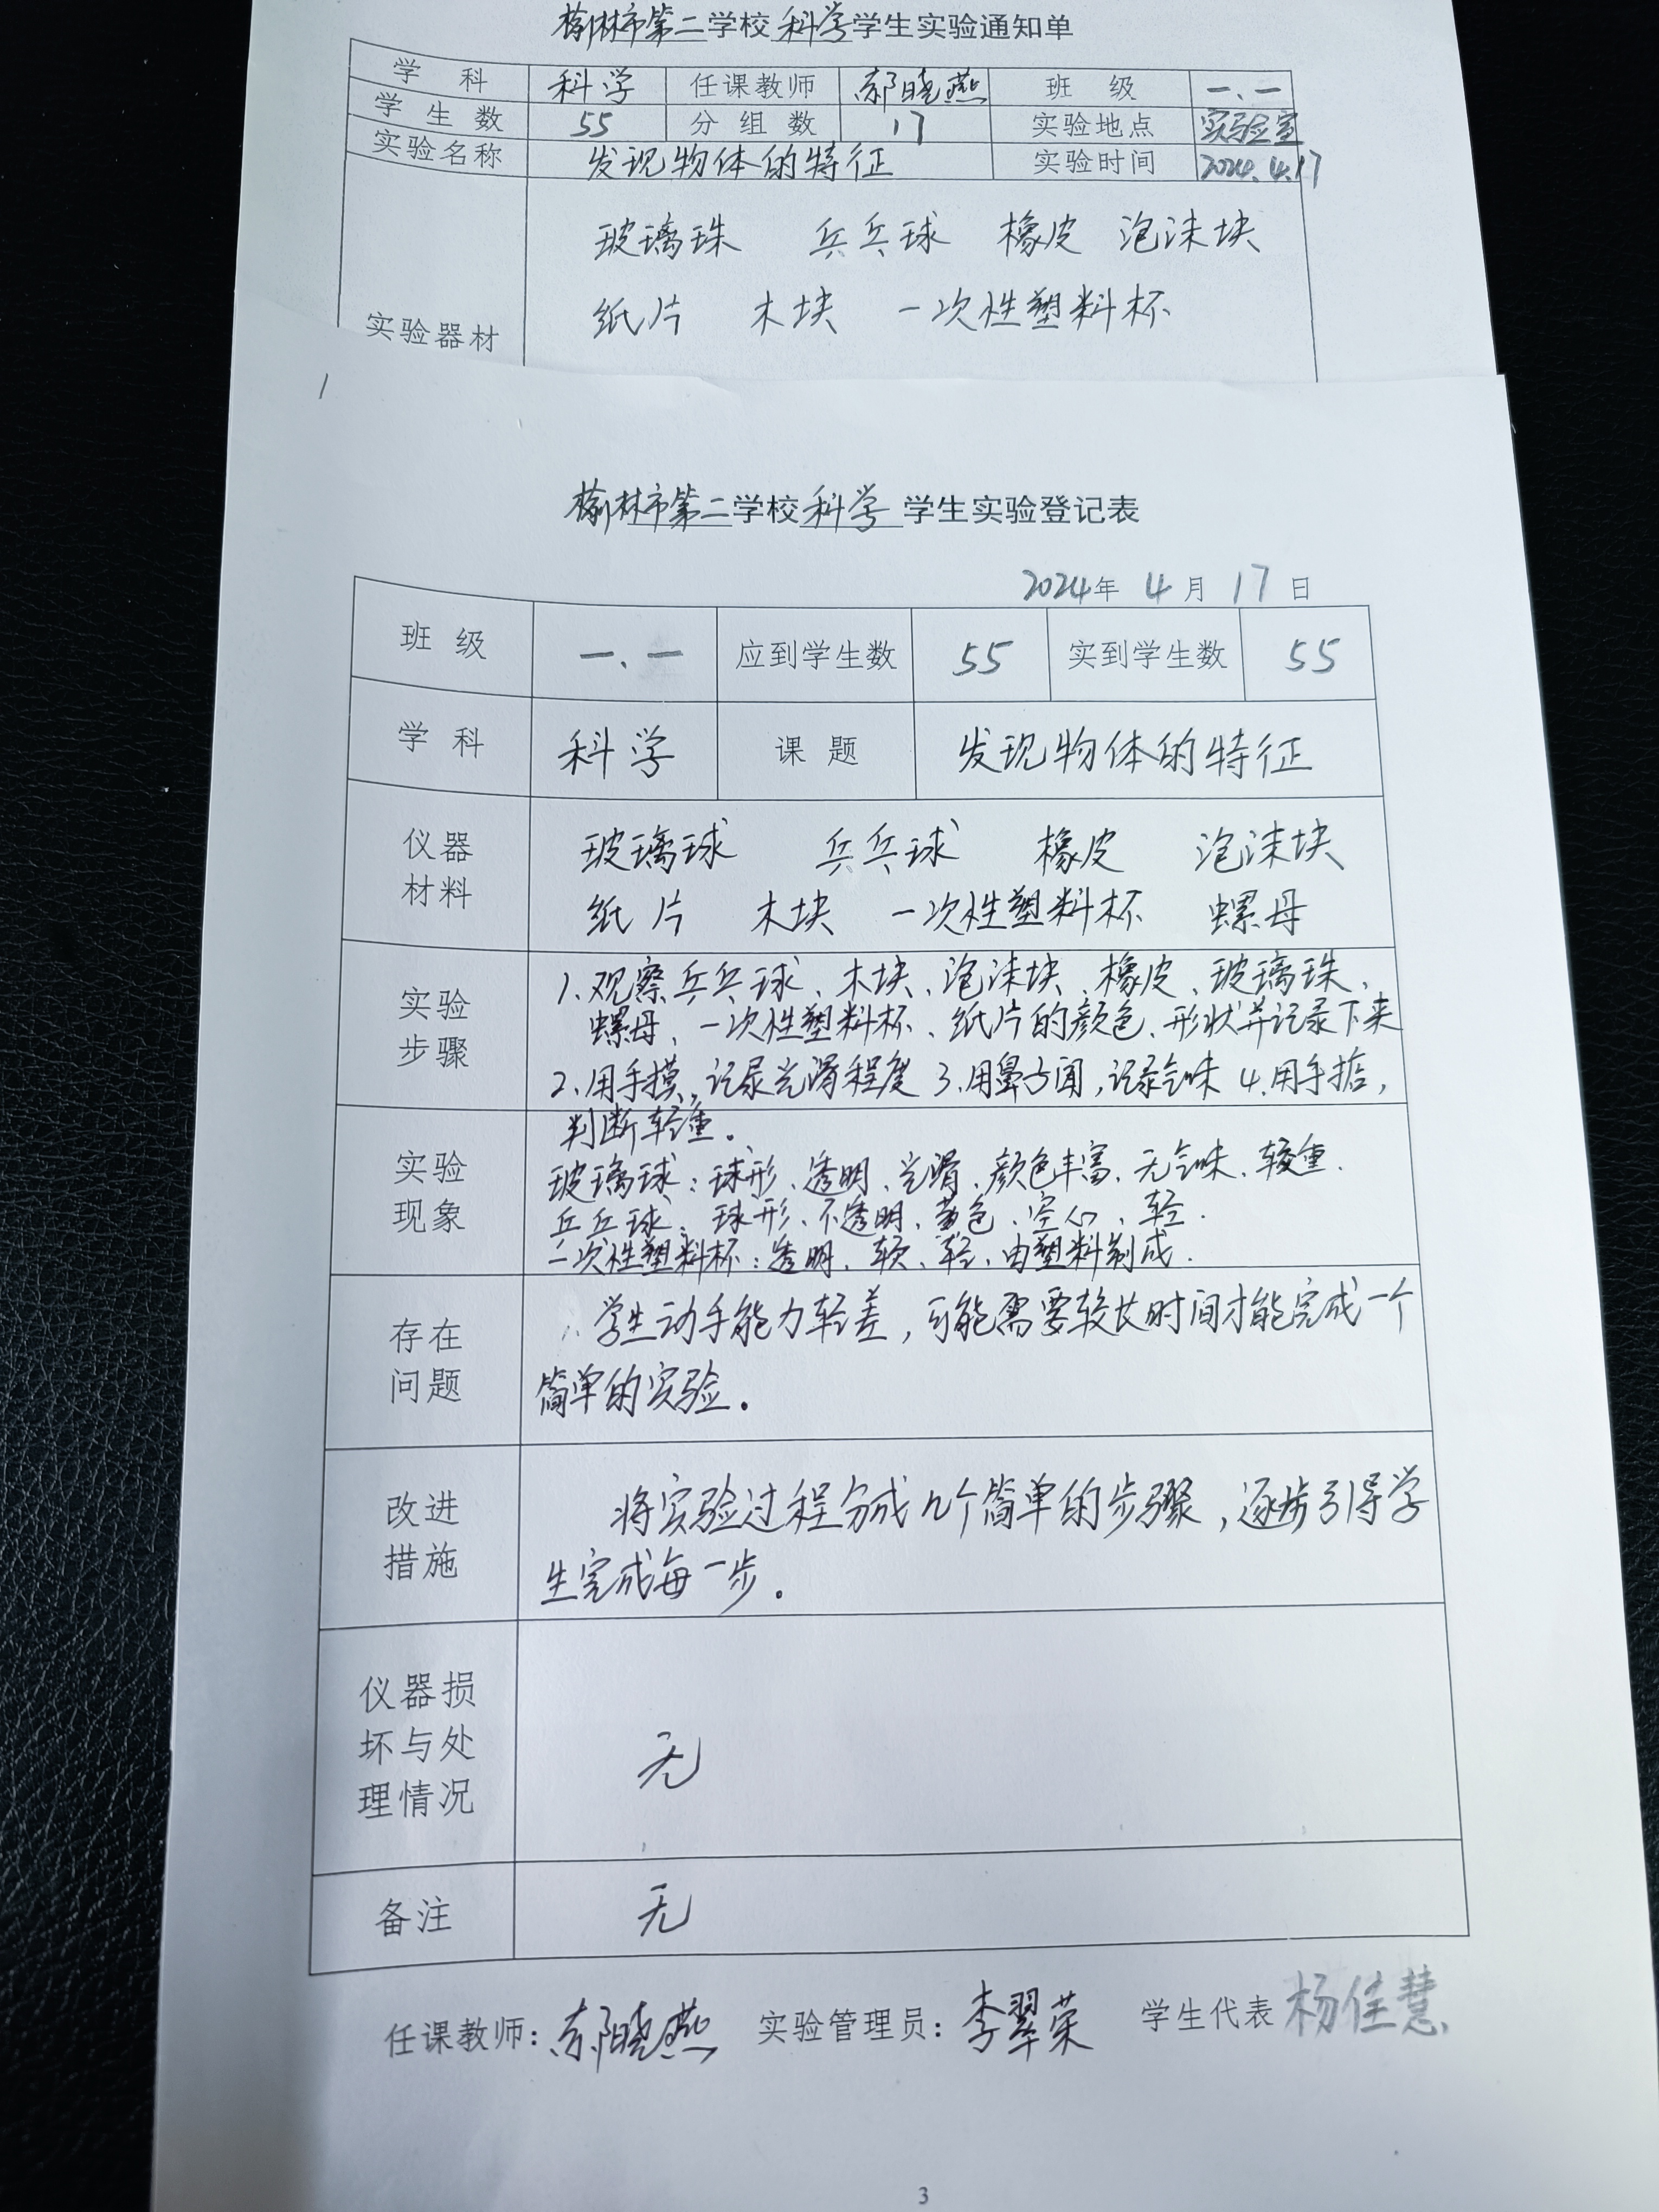 榆林市第二学校科学学生实验通知单
学 科 科学 任课教师 郝晓燕 班 级 一、一
学生数 55 分组数 17 实验地点 实验室
实验名称 发现物体的特征 实验时间 2024.4.17
玻璃珠 乒乓球 橡皮 泡沫块
纸片 木块 一次性塑料杯
实验器材
榆林市第二学校科学学生实验登记表
2024年 4月 17日
班 级 一、一 应到学生数 55 实到学生数 55
学 科 科学 课 题 发现物体的特征
仪器
材料
玻璃球 乒乓球 橡皮 泡沫块
纸片 木块 一次性塑料杯 螺母
实验
步骤
1、观察乒乓球、木块、泡沫块、橡皮、玻璃珠、
螺母、一次性塑料杯、纸片的颜色、形状并记录下来
2、用手摸,记录光滑程度 3、用鼻子闻,记录气味 4.用手掂,
判断轻重。
实验
现象
玻璃球:球形、透明、光滑、颜色丰富、无气味、较重.
乒乓球:球形、不透明、黄色、空心、轻.
一次性塑料杯:透明、软、轻、由塑料制成.
存在
问题
学生动手能力较差,可能需要较长时间才能完成一个
简单的实验。
改进
措施
将实验过程分成几个简单的步骤,逐步引导学
生完成每一步。
仪器损
坏与处
理情况
无
备注 无
任课教师:郝晓燕 实验管理员:李翠荣 学生代表 杨佳慧
3